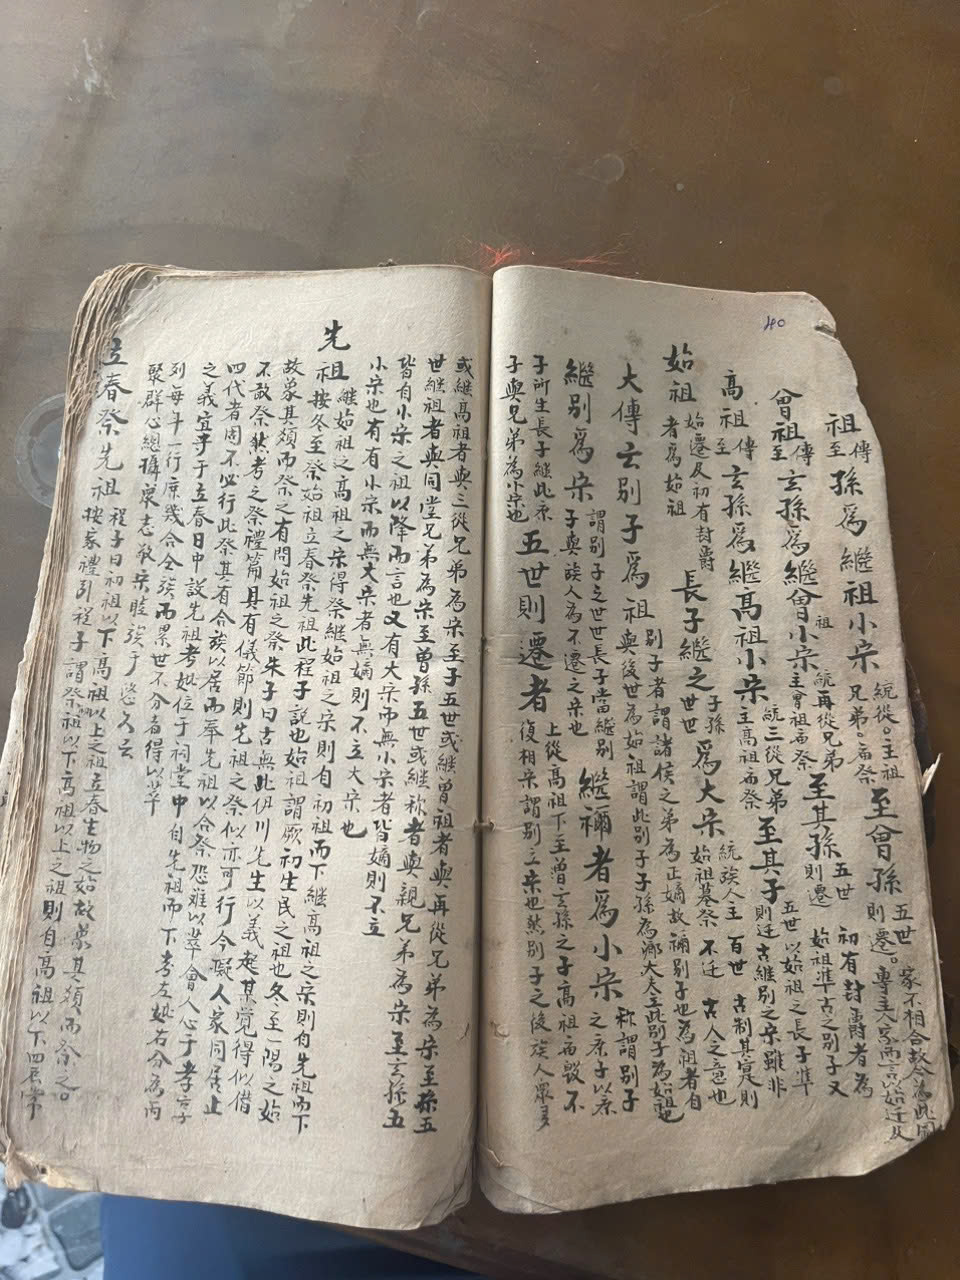 40
祖傳至孫爲繼祖小宗 統從兄弟。主祖廟祭 至曾孫 五世則遷。
曾祖傳至玄孫爲繼曾祖小宗 統再從兄弟主曾祖廟祭 至其孫 五世則遷 初有封爵者為始祖準古之別子又
高祖傳至玄孫爲繼高祖小宗 統三從兄弟主高祖廟祭 至其子 五世則迁 以始祖之長子準古継別之宗雖非
始祖 始遷及初有封爵者爲始祖 長子繼之 子孫世世 爲大宗 統族人主始祖墓祭 百世不迁 古制其寔則古人之意也
大傳云別子爲祖 別子者謂諸侯之弟為正嫡故禰別子也為祖者自與後世為始祖謂此別子子孫為
繼別爲宗 謂別子之世世長子當繼別子與族人為不遷之宗也 繼禰者爲小宗 称謂別子之庶子以庶
子所生長子継此庶子與兄弟為小宗也 五世則遷者 上從高祖下至曾玄孫之子高祖廟毀不復相宗謂別立宗也然別子之後族人眾多
或継高祖者與三從兄弟為宗至子五世或継曾祖者與再從兄弟為宗至孫五
世継祖者與同堂兄弟為宗至曾孫五世或継称者與親兄弟為宗至玄孫五
皆自小宗之祖以降而言也又有大宗而無小宗者皆嫡則不立
小宗也有有小宗而無大宗者無嫡則不立大宗也
先祖 継始祖之高祖之宗得祭継始祖之宗則自初祖而下継高祖之宗則自先祖而下
按冬至祭始祖立春祭先祖此程子說也始祖謂厥初生民之祖也冬至一陽之始
故象其類而祭之有問始祖之祭朱子曰古無此伊川先生以義起某覚得似僭
不敢祭然考之祭禮篇具有儀節則先祖之祭似亦可行今擬人家同居止
四代者固不必行此祭其有合族以居而奉先祖以合祭恐難以萃會人心于孝
之義宜于立春日中設先祖考妣位于祠堂中自先祖而下考左妣右分為
列每年一行庶幾合今族而累世不分者得以萃
聚群心總攝眾志敦宗睦族于悠久云
立春祭先祖 程子曰初祖以下高祖以上之祖立春生物之始故象其類而祭之。
按家禮引程子謂祭祖以下高祖以上之祖則自高祖以下四